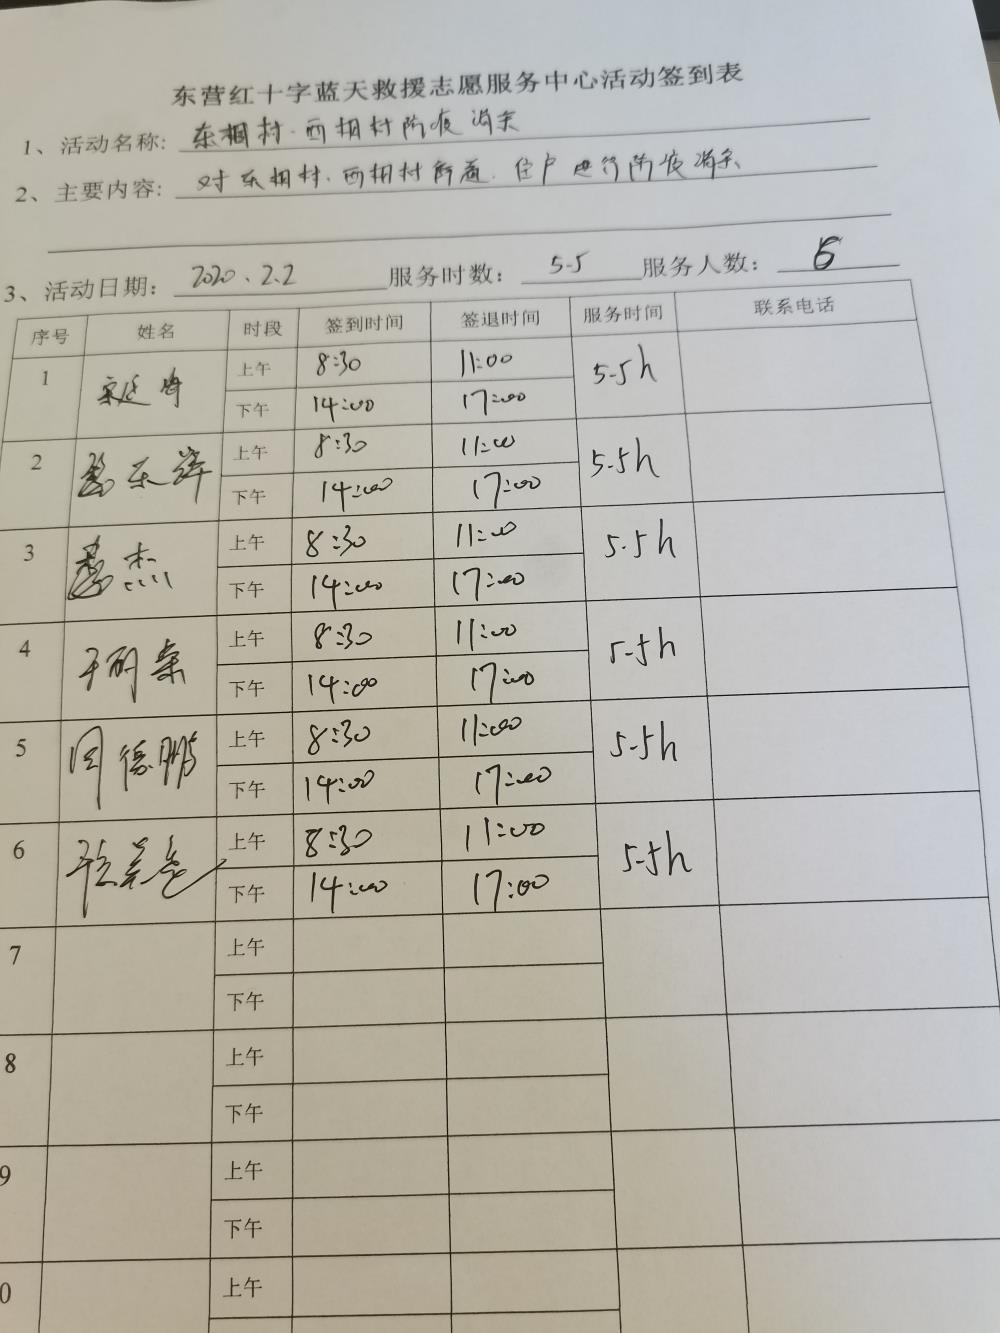 东营红十字蓝天救援志愿服务中心活动签到表
1、活动名称: 东桐村.西桐村防疫消杀
2、主要内容: 对东桐村.西桐村街道.住户进行防疫消杀
3、活动日期: 2020.2.2 服务时数: 5.5 服务人数: 6
序号 姓名 时段 签到时间 签退时间 服务时间 联系电话
1 上午 8:30 11:00 5.5h
下午 14:00 17:00
2 上午 8:30 11:00 5.5h
下午 14:00 17:00
3 上午 8:30 11:00 5.5h
下午 14:00 17:00
4 上午 8:30 11:00 5.5h
下午 14:00 17:00
5 周德鹏 上午 8:30 11:00 5.5h
下午 14:00 17:00
6 上午 8:30 11:00 5.5h
下午 14:00 17:00
7 上午
下午
8 上午
下午
9 上午
下午
0 上午